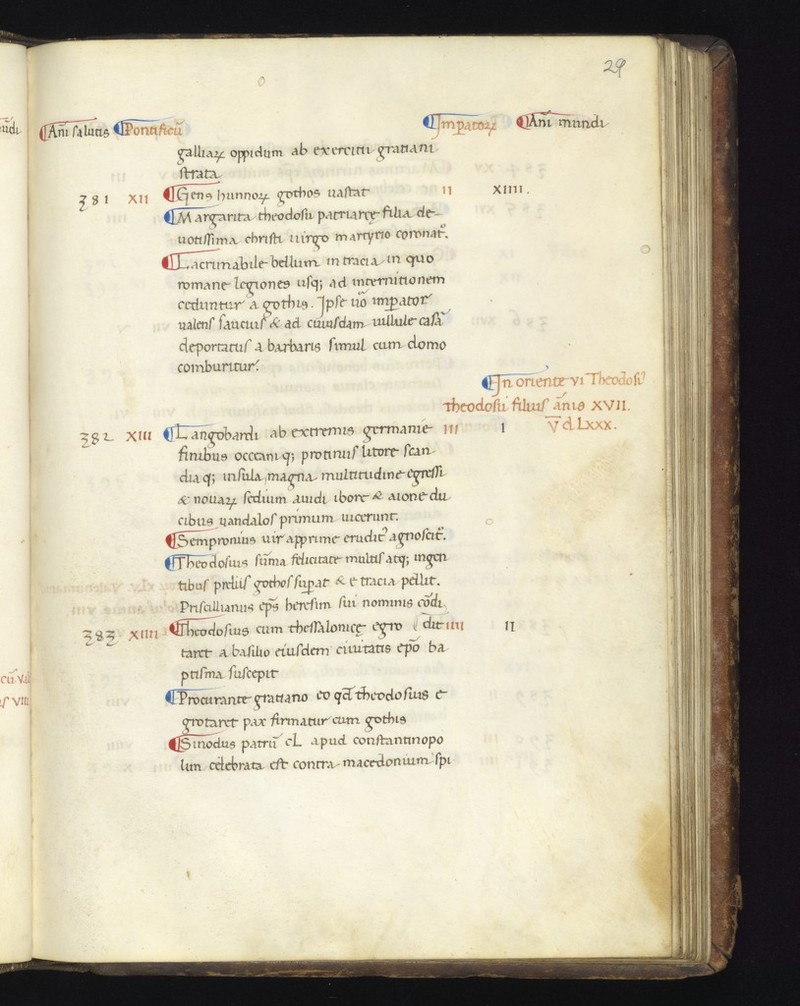 29
Añi salutis Pontificũ Imp̱atoꝝ Añi mundi
galliaꝝ oppidum ab exercitu gratiani
strata
381 XII Gens hunnoꝝ gothos uastat II XIIII.
Margarita theodosii patriarcę filia de-
uotissima christi uirgo martyrio coronat᷑.
Lacrimabile bellum in tracia in quo
romane legiones usq; ad internitionem
ceduntur a gothis. Ipse uo̅ imp̱ator
ualens saucius & ad cuiusdam uillule casa̅
deportatus a barbaris simul cum domo
comburitur.
In oriente VI Theodosiꝰ
theodosii filius an̅is XVII.
382 XIII Langobardi ab extremis germanię III I V̅ d Lxxx.
finibus occeani q; protinus litore scan
dia q; insula magna multitudine egressi
& nouaꝝ sedium auidi ibore & aione du
cibus uandalos primum uicerunt.
Sempronius uir apprime erudit᷒ agnoscit᷑.
Theodosius su̅ma felicitate multis atq; ingen
tibus preliis gothos sup̱at & e tracia pellit.
Priscillianus ep̅s heresim sui nominis co̅di
383 XIIII Theodosius cum thessalonicę egro dit IIII II
taret a basilio eiusdem ciuitatis ep̅o ba
ptisma suscepit
Procurante gratiano eo qd̅ theodosius e
grotaret pax firmatur cum gothis
Sinodus patru̅ cL apud constantinopo
lim celebrata est contra macedonium sp̅i